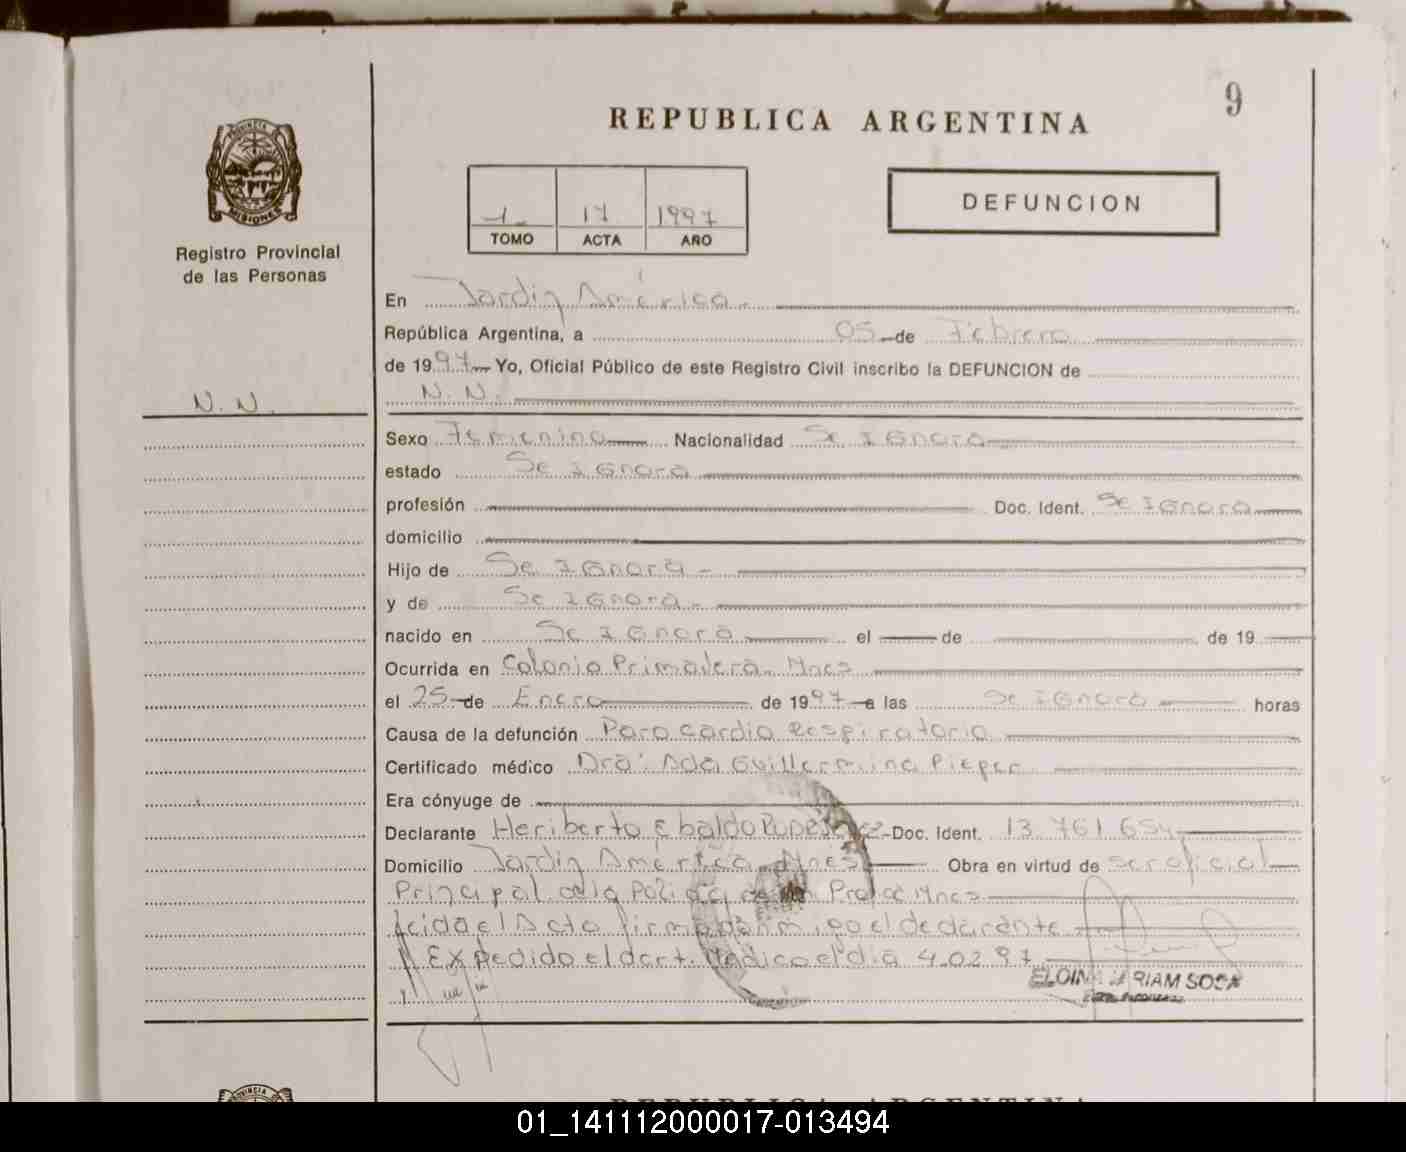 9
REPUBLICA ARGENTINA
PROVINCIA DE
MISIONES
1 17 1997
TOMO ACTA AÑO
DEFUNCION
Registro Provincial
de las Personas
En Jardin América.
República Argentina, a 05 de Febrero
de 1997 Yo, Oficial Público de este Registro Civil inscribo la DEFUNCION de
N. N.
N. N.
Sexo Femenino Nacionalidad Se Ignora
estado Se Ignora
profesión Doc. Ident. Se Ignora
domicilio
Hijo de Se Ignora
y de Se Ignora
nacido en Se Ignora el de de 19
Ocurrida en Colonia Primavera Mnes
el 25 de Enero de 1997 a las Se Ignora horas
Causa de la defunción Paro cardio Respiratorio
Certificado médico Dra. Ada Guillermina Pieper
Era cónyuge de
Declarante Heriberto Ebaldo Doc. Ident. 13.761.654
Domicilio Jardin América Mnes Obra en virtud de ser oficial
Principal de la Policia de Mnes
leida el Acta firma el declarante
Expedido el cert. Medico el dia 4.02.97
MIRIAM SOSA
REPUBLICA ARGENTINA
01_141112000017-013494